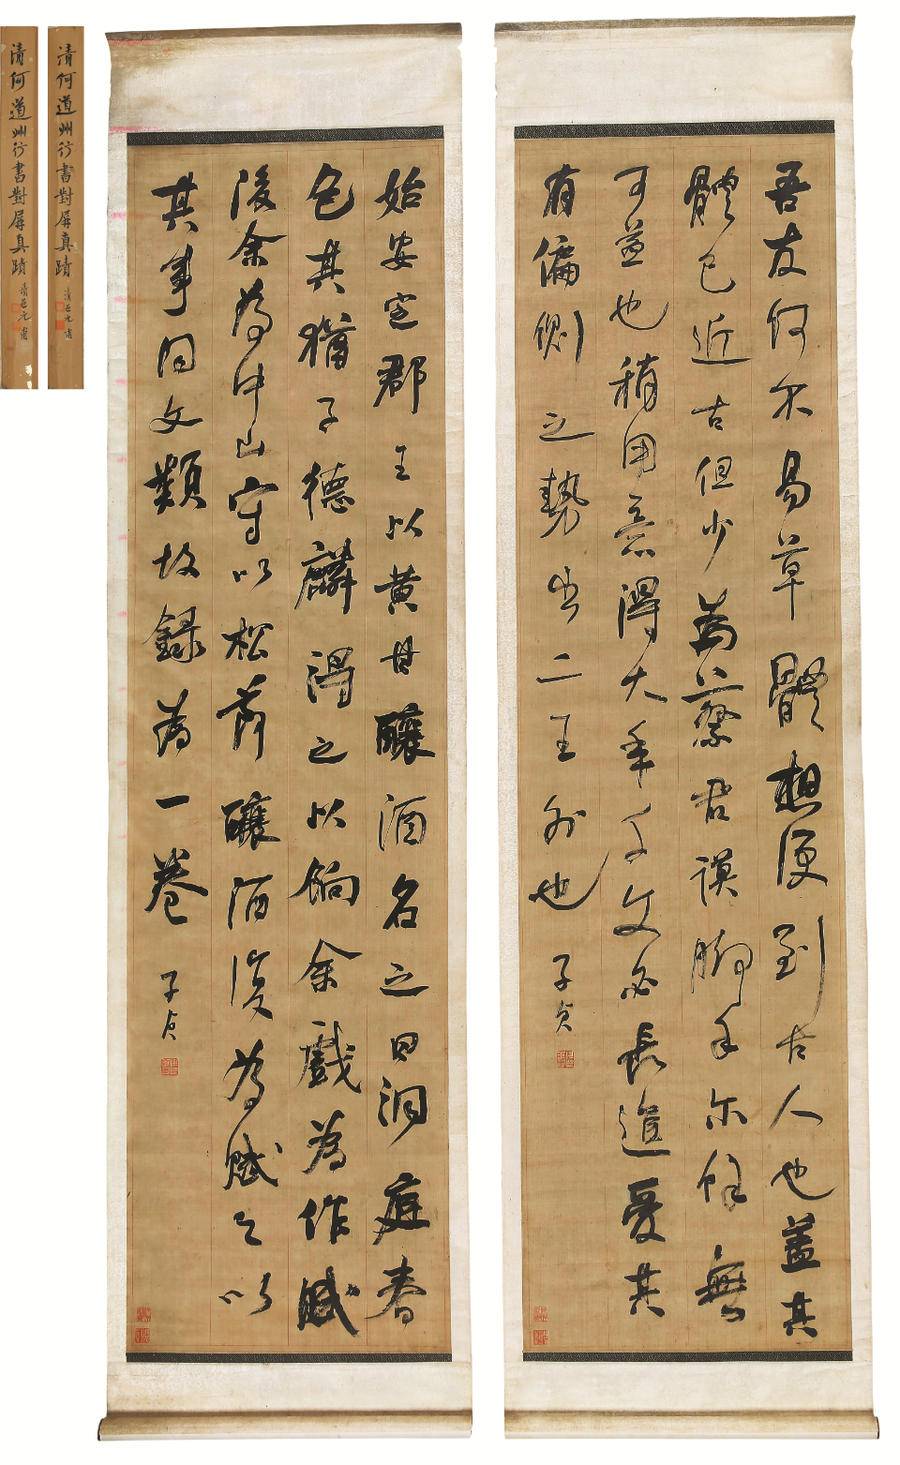 吾友何尔易草體想便到古人也蓋其
體已近古但少為蔡君謨脚手尔餘無
可並也稍用意得大年千文必長進愛其
有偏側之勢出二王外也
子貞
始安定郡王以黄甘釀酒名之曰洞庭春
色其猶子德麟得之以餉余戲為作賦
後余為中山守以松節釀酒復為賦之以
其事同文類故録為一卷
子貞
清何道州行書對屏真蹟
清何道州行書對屏真蹟